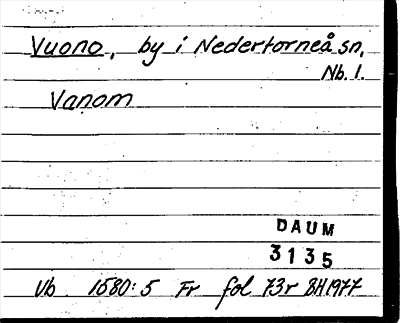 Vuono, by i Nedertorneå sn,
Nb. l.
Vanom
DAUM
3135
Vb 1580:5 Fr fol 73r BH 1977